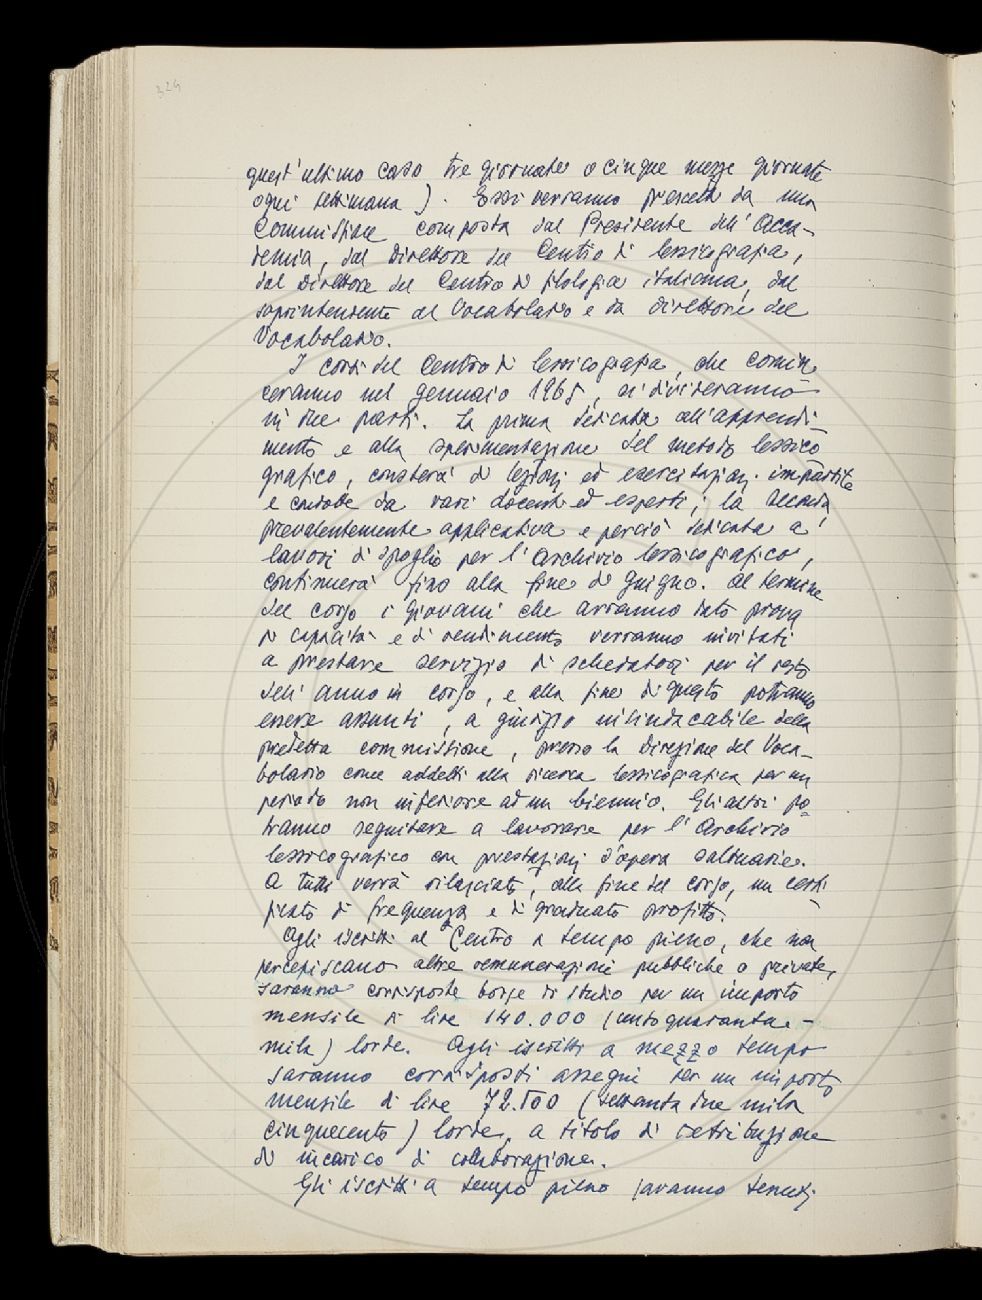 324
quest'ultimo caso tre giornate o cinque mezze giornate
ogni settimana). Essi verranno prescelti da una
Commissione composta dal Presidente dell'Acca-
demia, dal Direttore del Centro di lessicografia,
dal Direttore del Centro di filologia italiana, dal
soprintendente al Vocabolario e da direttori del
Vocabolario.
I corsi del Centro di lessicografia, che comin
ceranno nel gennaio 1965, si divideranno
in due parti. La prima dedicata all'apprendi-
mento e alla sperimentazione del metodo lessico
grafico, consterà di lezioni ed esercitazioni impartite
e condotte da vari docenti ed esperti; la seconda,
prevalentemente applicativa e perciò dedicata a
lavori di spoglio per l'Archivio lessicografico,
continuerà fino alla fine di giugno. Al termine
del corso i giovani che avranno dato prova
di capacità e di rendimento verranno invitati
a prestare servizio di schedatori per il resto
dell'anno in corso, e alla fine di questo potranno
essere assunti, a giudizio insindacabile della
predetta commissione, presso la Direzione del Voca-
bolario come addetti alla ricerca lessicografica per un
periodo non inferiore ad un biennio. Gli altri po-
tranno seguitare a lavorare per l'Archivio
lessicografico con prestazioni d'opera saltuarie.
A tutti verrà rilasciato, alla fine del corso, un certi-
ficato di frequenza e di graduato profitto.
Agli iscritti al Centro a tempo pieno, che non
percepiscano altre remunerazioni pubbliche o private,
saranno corrisposte borse di studio per un importo
mensile di lire 140.000 (centoquaranta-
mila) lorde. Agli iscritti a mezzo tempo
saranno corrisposti assegni per un importo
mensile di lire 72.500 (settantadue mila
cinquecento) lorde, a titolo di retribuzione
di incarico di collaborazione.
Gli iscritti a tempo pieno saranno tenuti